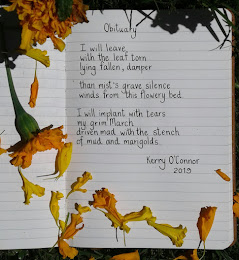 Obituary
I will leave,
with the leaf torn
lying fallen, damper
than mist's grave silence
winds from this flowery bed.
I will implant with tears
my grim March
driven mad with the stench
of mud and marigolds.
Kerry O'Connor
2019